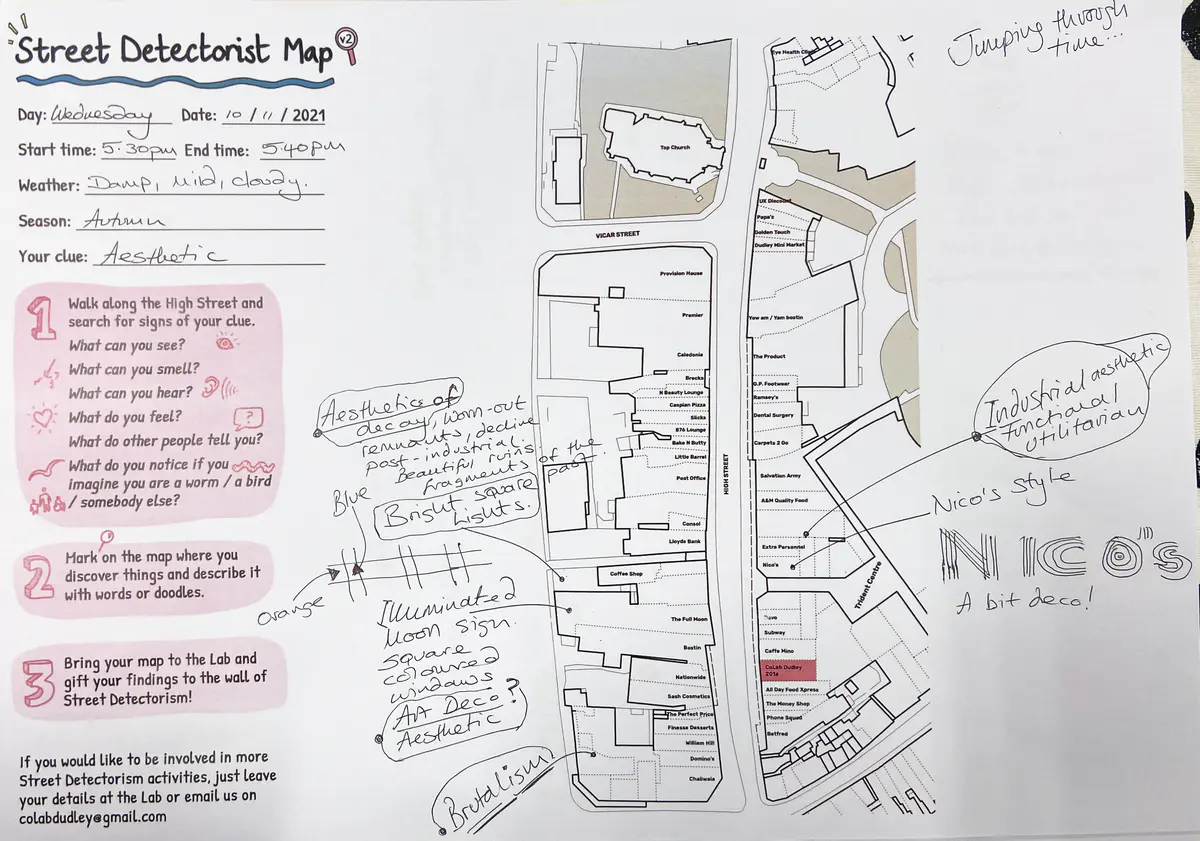 Street Detectorist Map v2
Day: Wednesday Date: 10 / 11 / 2021
Start time: 5.30pm End time: 5.40pm
Weather: Damp, mild, cloudy.
Season: Autumn
Your clue: Aesthetic
1 Walk along the High Street and
search for signs of your clue.
What can you see?
What can you smell?
What can you hear?
What do you feel?
What do other people tell you?
What do you notice if you
imagine you are a worm / a bird
/ somebody else?
2 Mark on the map where you
discover things and describe it
with words or doodles.
3 Bring your map to the Lab and
gift your findings to the wall of
Street Detectorism!
If you would like to be involved in more
Street Detectorism activities, just leave
your details at the Lab or email us on
colabdudley@gmail.com
Aesthetics of
decay, worn-out
remnants, decline
post-industrial.
Beautiful ruins of the
fragments past.
Blue
Bright square
Lights.
Orange
Illuminated
Moon sign.
square
coloured
windows
Art Deco?
Aesthetic
Brutalism
Top Church
VICAR STREET
Provision House
Premier
Caledonia
Brecks
N Beauty Lounge
Caspian Pizza
Slicks
876 Lounge
Bake N Butty
Little Barrel
Post Office
Consol
Lloyds Bank
Coffee Shop
The Full Moon
Bostin
Nationwide
Sash Cosmetics
The Perfect Price
Finesse Desserts
William Hill
Domino's
Chaiiwala
HIGH STREET
Eye Health Clinic
UK Discount
Papa's
Golden Touch
Dudley Mini Market
Yow am / Yam bostin
The Product
G.P. Footwear
Ramsey's
Dental Surgery
Carpets 2 Go
Salvation Army
A&M Quality Food
Extra Personnel
Nico's
Trident Centre
Subway
Caffe Mino
CoLab Dudley
201a
All Day Food Xpress
The Money Shop
Phone Squad
Betfred
Jumping through
time...
Industrial aesthetic
functional
utilitarian
Nico's Style
NICOS
A bit deco!